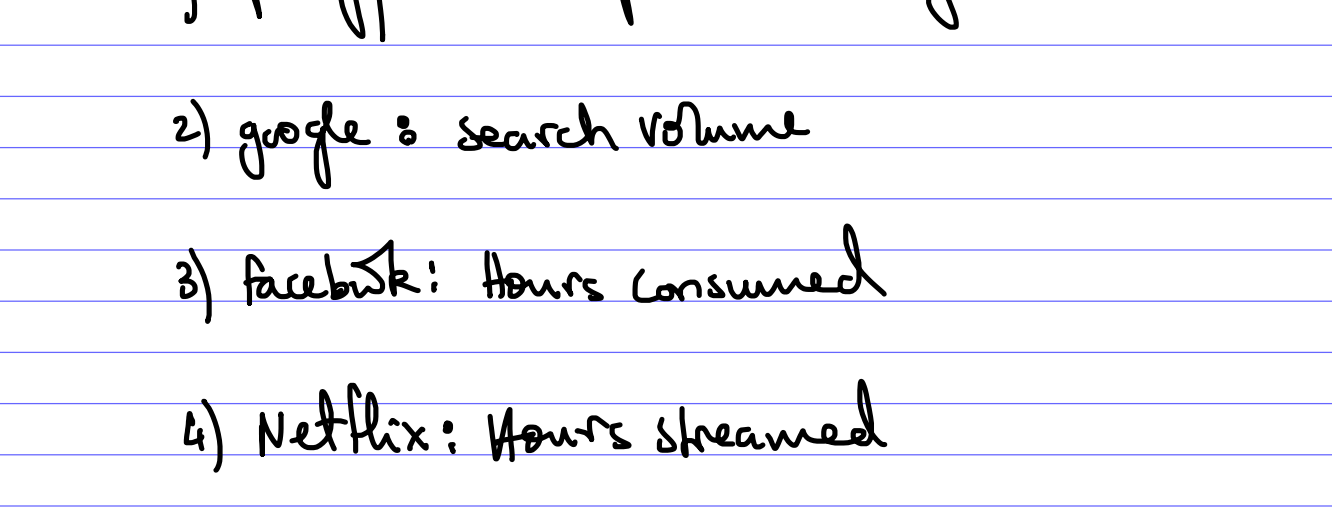 2) google : search volume
3) facebook: Hours consumed
4) Netflix: Hours streamed